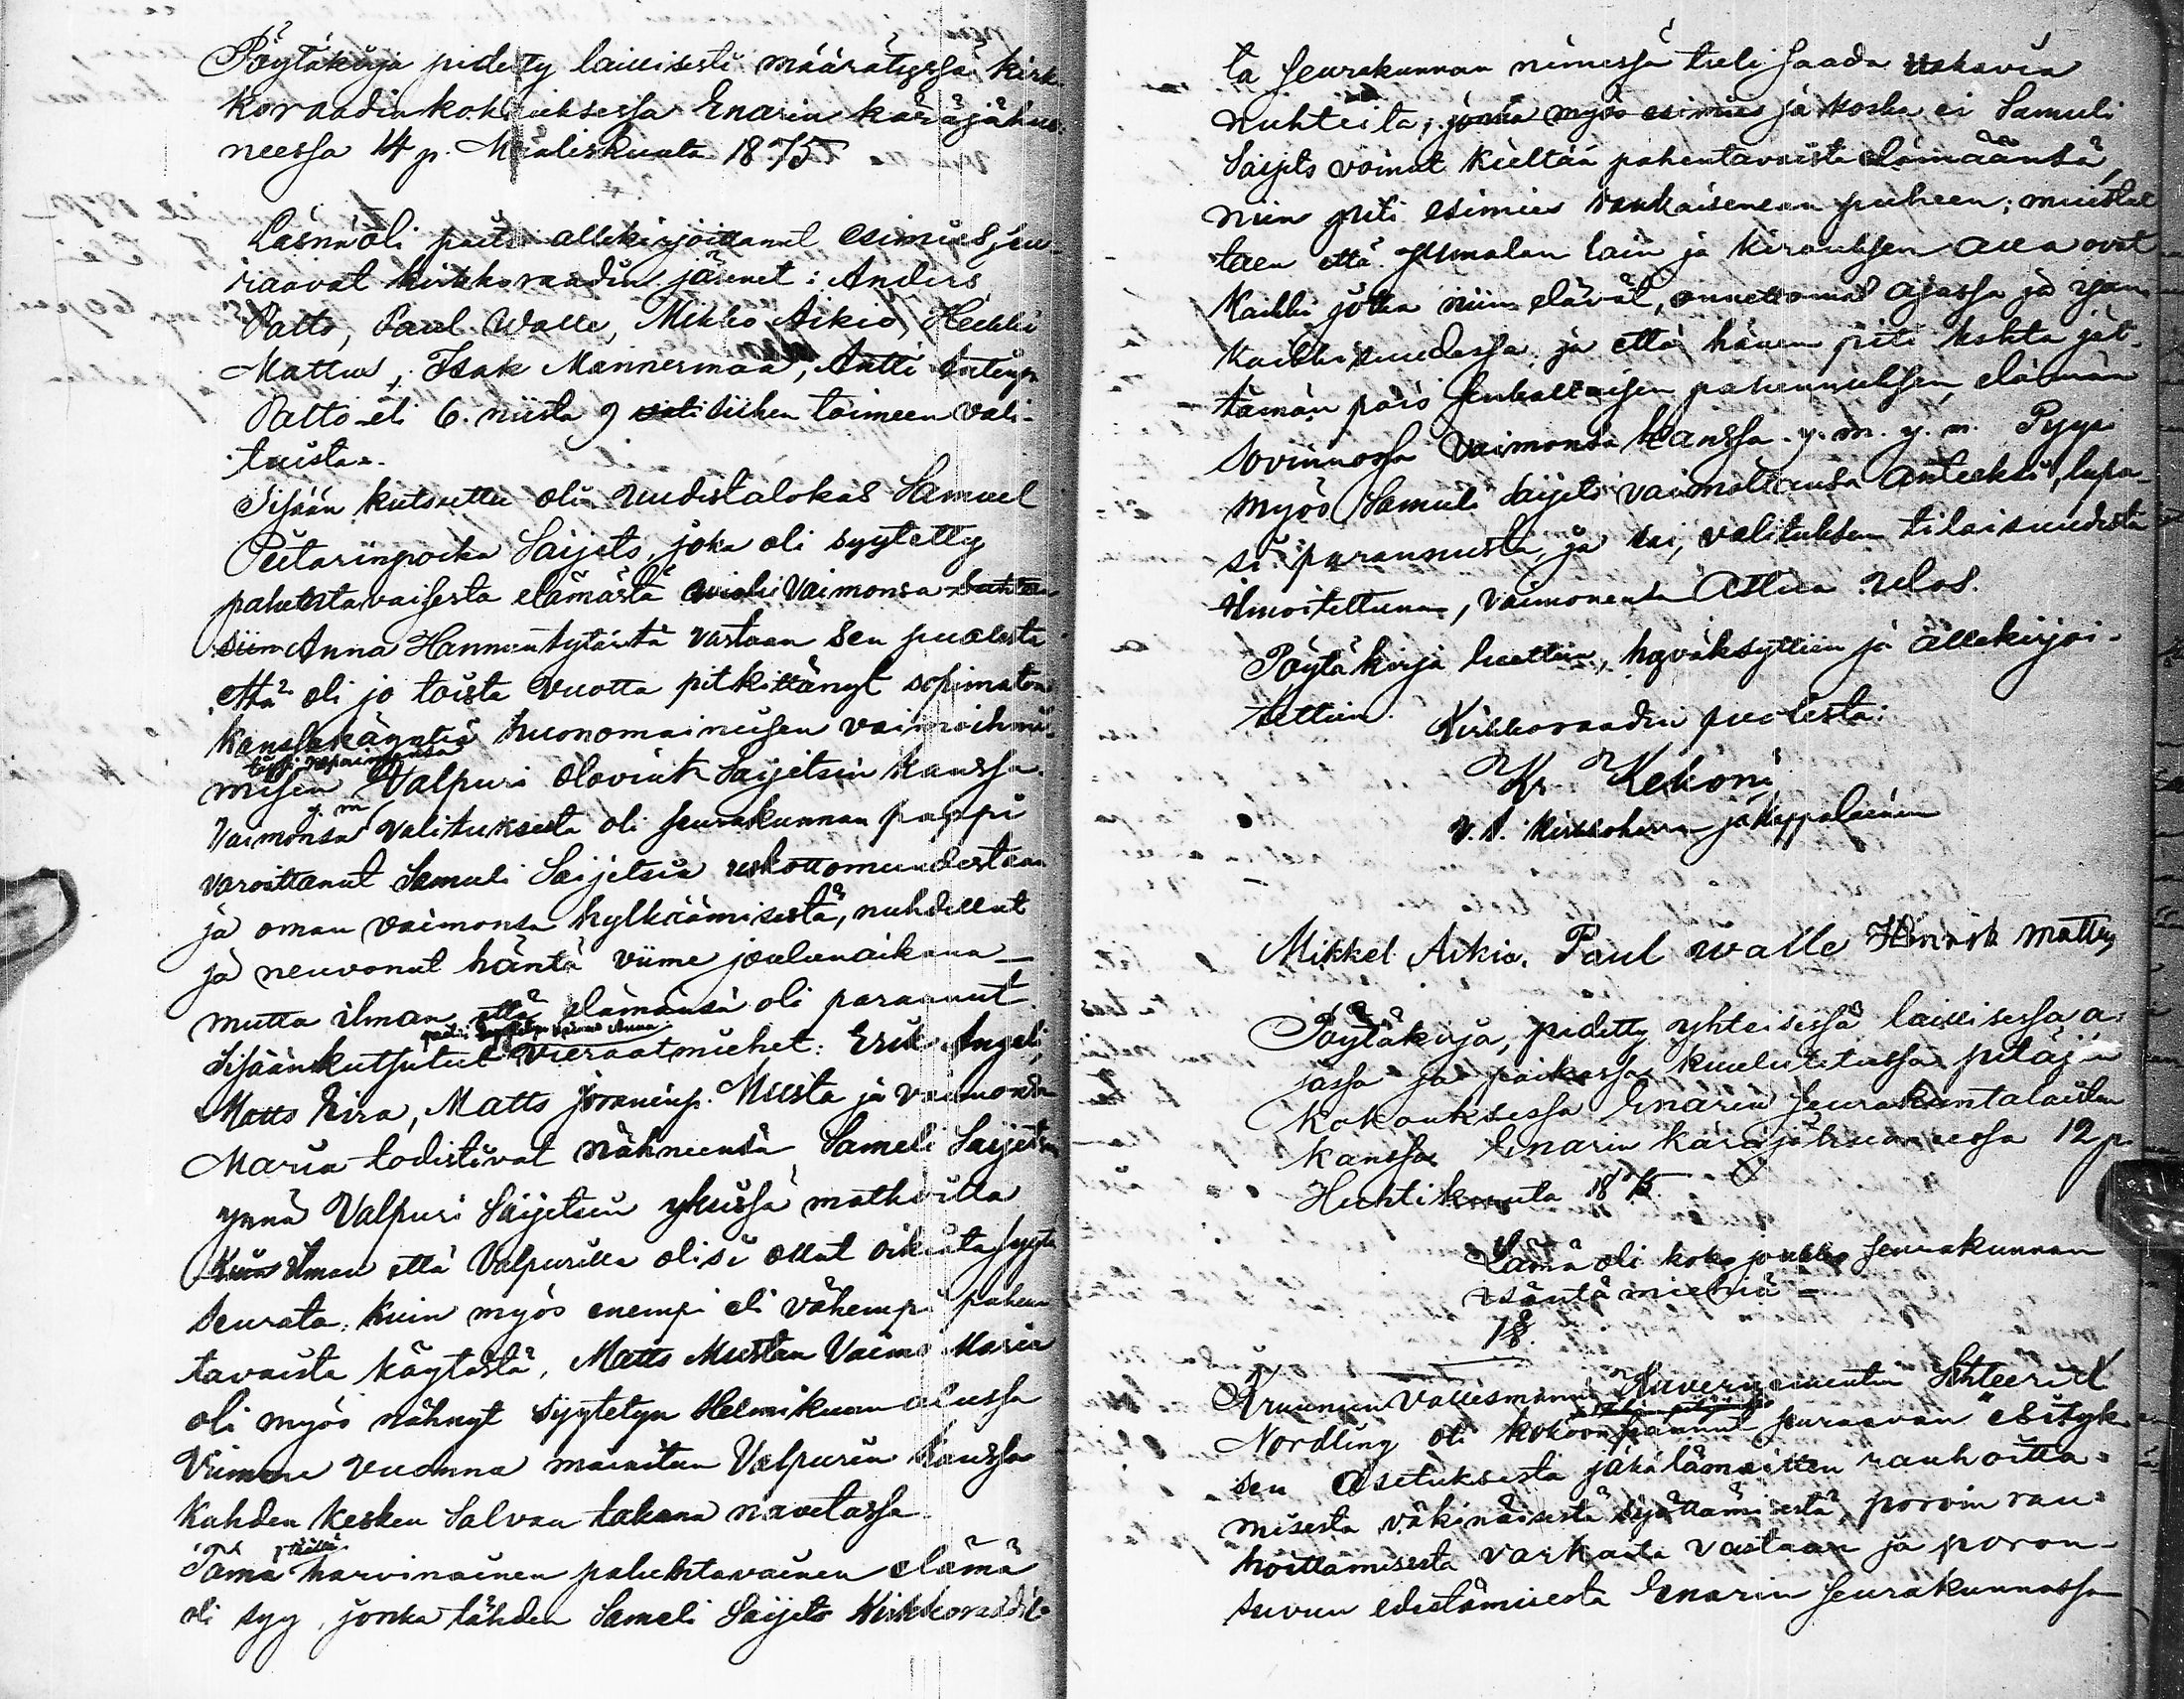 Pöytäkirja pidetty laillisesti määrätyssä kirk-
koraadin kokouksessa Enarin käräjähuo-
neessa 14 p. Maaliskuuta 1875
Läsnä oli paitsi allekirjoittanut esimies seu-
raavat kirkkoraadin jäsenet: Anders
Patto, Paul Walle, Mikko Aikio, Heikki
Mattus, Isak Mannermaa, Antti Antinp.
Patto eli 6. niistä 9 siihen toimeen vali-
tuista.
Sisään kutsuttu oli uudistalokas Samuel
Pietarinpoika Saijets, joka oli syytetty
pahentavaisesta elämästä vaimonsa
Anna Hannuntytärtä vastaan sen puolesta
että oli jo toista vuotta pitkittänyt sopimaton
kanssakäyntiä huonomaineisen vaimoihmi-
misen Valpuri Olovint. Saijetsin kanssa.
Vaimonsa y. m. valituksesta oli seurakunnan pappi
varoittanut Samuli Saijetsia uskottomuudestaan
ja oman vaimonsa hylkäämisestä, nuhdellut
ja neuvonut häntä viime joulunaikana —
mutta ilman että elämänsä oli parannut.
Sisäänkutsutut vieraatmiehet: Erik Angeli,
Matts Kira, Matts Joraninp. Musta ja vaimonsa
Maria todistivat nähneensä Sameli Saijetsin
ynnä Valpuri Saijetsin yksissä matkoilla
ilman että Valpurilla olisi ollut oikiata syytä
seurata; kuin myös enempi eli vähempi pahen-
tavaista käytöstä, Matts Mustan Vaimo Maria
oli myös nähnyt syytetyn Helmikuun alussa
Viimme vuonna mainitun Valpurin kanssa
kahden kesken salvan takana navetassa.
Tämä täällä harvinainen pahentavainen elämä
oli syy, jonka tähden Sameli Saijets Kirkkoraadil-
ta seurakunnan nimessä tuli saada vakavia
nuhteita; jonka myös esimies ja koska ei Samuli
Saijets voinut kieltää pahentavaista elämäänsä,
niin piti esimies rankaisevan puheen; muistut-
taen että Jumalan lain ja kirouksen alla ovat
kaikki jotka niin elävät, onnettomat ajassa ja ijan-
kaikkisuudessa; ja että hänen piti kohta jät-
tämän pois senkaltaisen pahennuksen, elämän
sovinnossa vaimonsa kanssa. y. m. y. m. Pyysi
myös Samuli Saijets vaimoltansa anteeksi, lupa-
si parannusta, ja sai, valituksen tilaisuudesta
ilmoitettuna, vaimonensa astua ulos.
Pöytäkirja luettiin, hyväksyttiin ja allekirjoi-
tettiin. Kirkkoraadin puolesta:
Kr. Kekoni
V. t. Kirkkoherra ja Kappalainen
Mikkel Aikio. Paul Walle Hinrik Mattus
Pöytäkirja, pidetty yhteisessä laillisessa a-
jassa ja paikassa kuulutetussa pitäjän
kokouksessa Enarin seurakuntalaisten
kanssa Enarin käräjähuoneessa 12 p.
Huhtikuuta 1875
Läsnä oli koko joukko seurakunnan
isäntämiehiä —
1 §.
Kruunun Vallesmanni Kuvernementin Sihteeri
Nordling oli kokoonpannut seuraavan esityk-
sen Asetuksesta jäkälämaitten rauhoitta-
misesta väkinäisestä syöttämisestä, poroin rau-
hoittamisesta varkaita vastaan ja poron-
suvun edistämisestä Enarin seurakunnassa